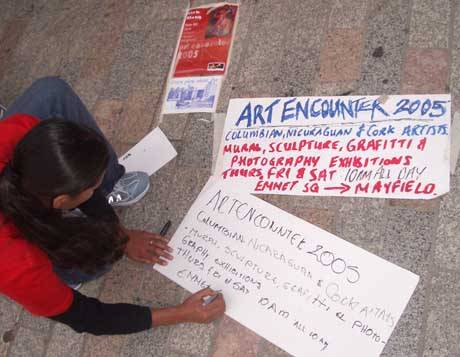 2005
ART ENCOUNTER 2005
COLUMBIAN, NICURAGUAN & CORK ARTISTS.
MURAL, SCULPTURE, GRAFITTI &
PHOTOGRAPHY EXHIBITIONS
THURS, FRI & SAT 10AM ALL DAY
EMMET SQ → MAYFIELD.
ART ENCOUNTER 2005
COLUMBIAN, NICARAGUAN & CORK ARTISTS
- MURAL, SCULPTURE, GRAFITTI, & PHOTO-
GRAPHY EXHIBITIONS
THURS, FRI & SAT 10AM ALL DAY
EMME